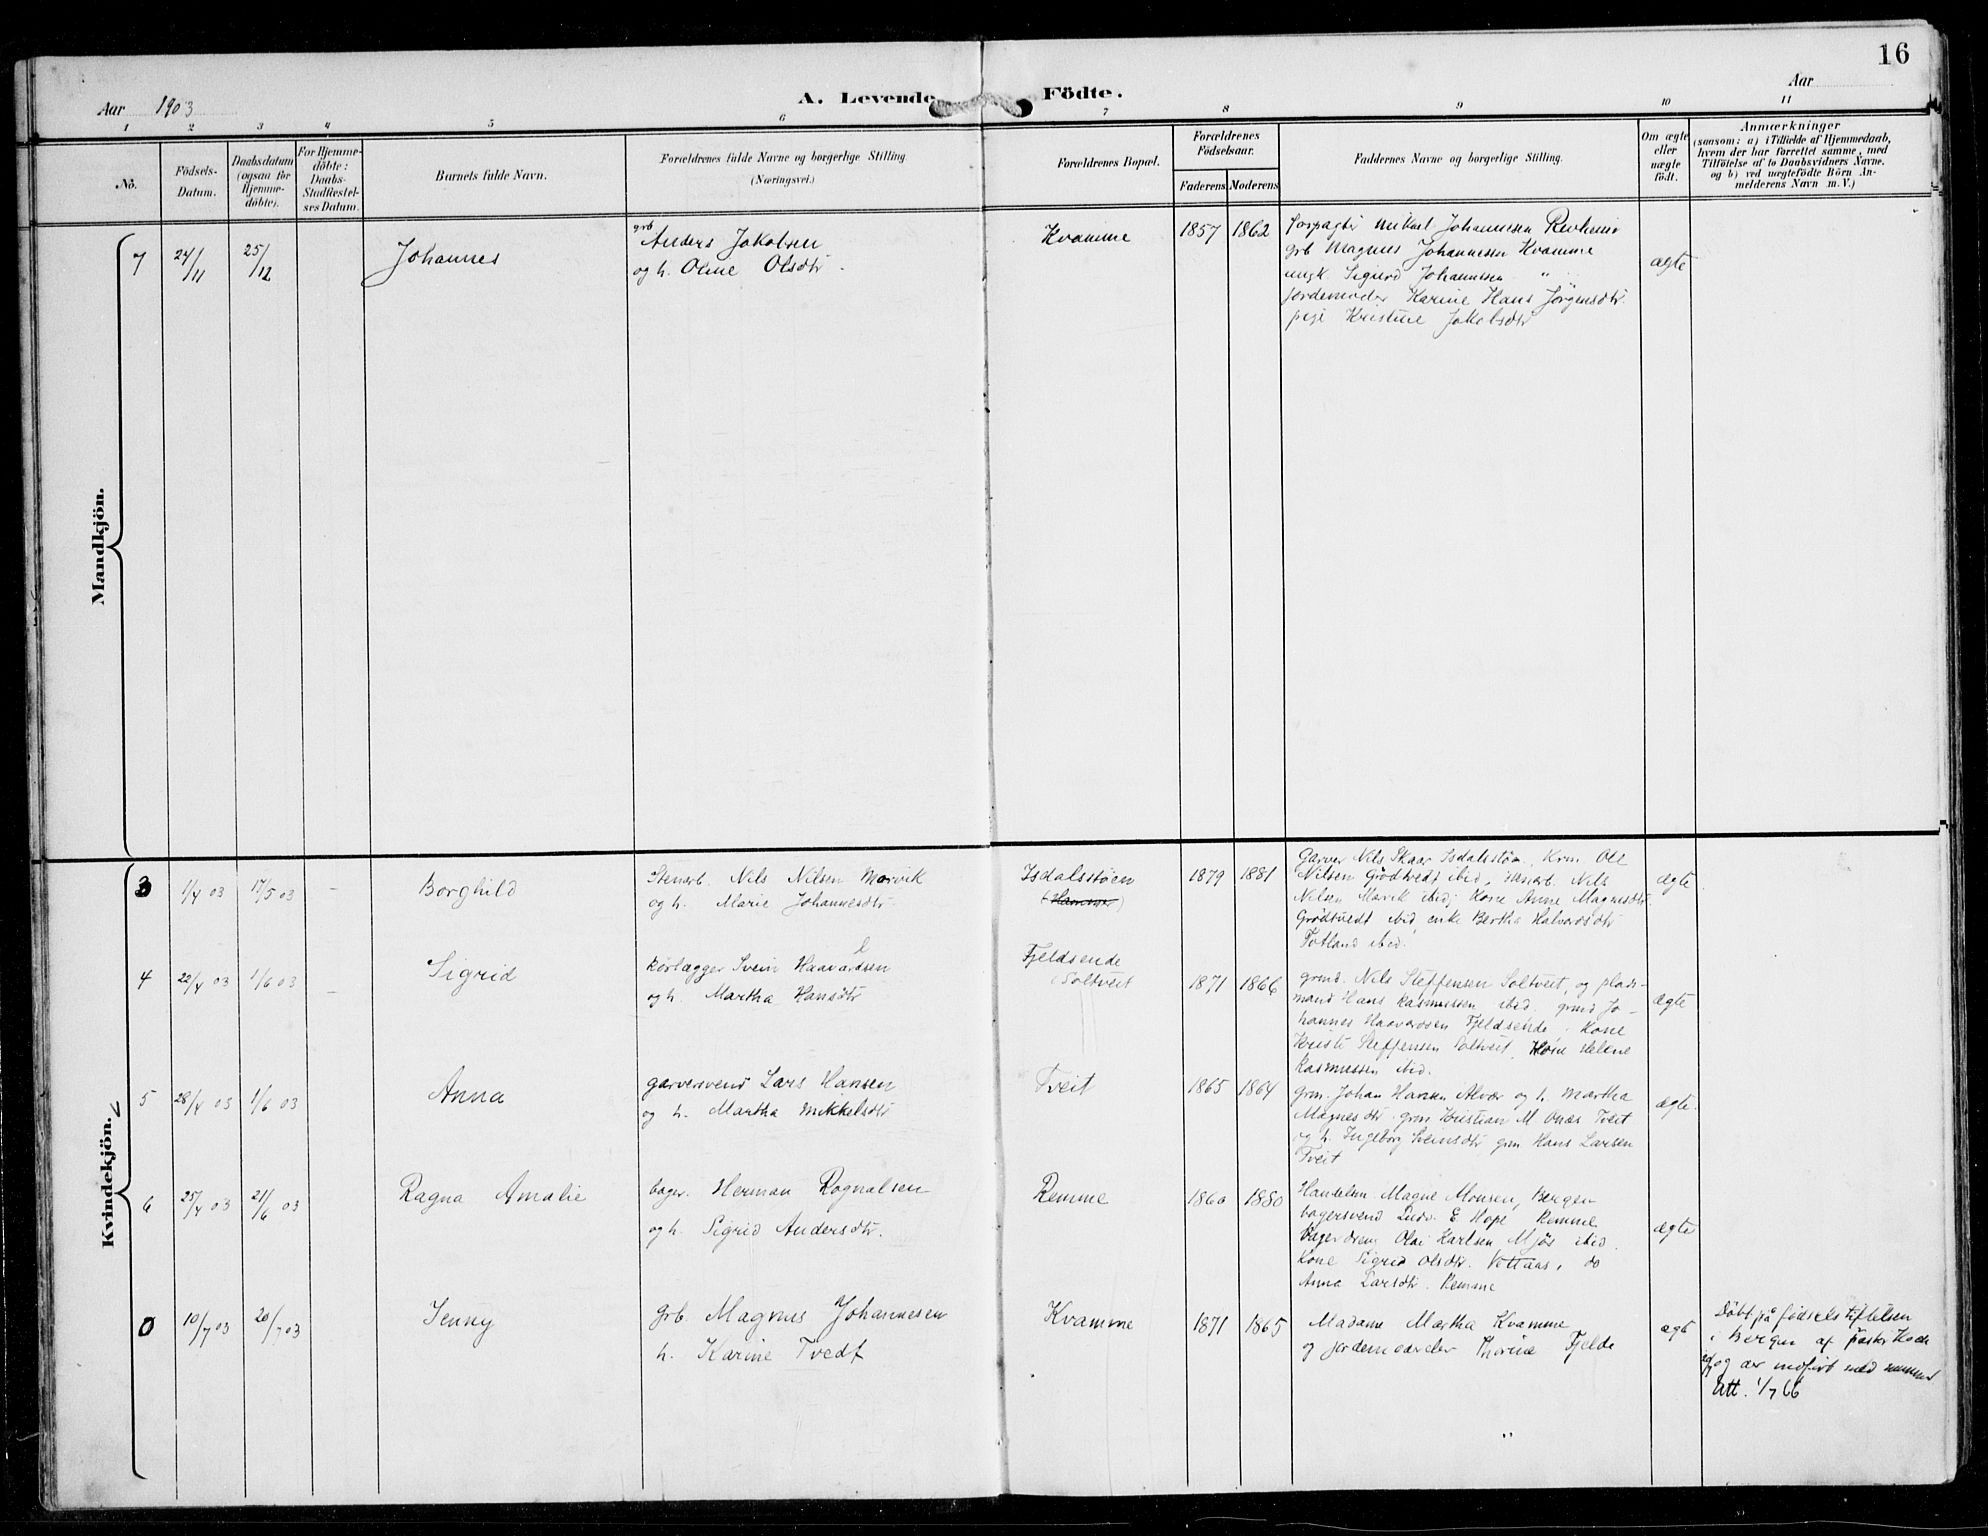 16
Aar 1903
A. Levende Födte.
Aar
1 2 3 4 5 6 7 8 9 10 11
Nö.
Födsels-Datum.
Daabsdatum (ogsaa for Hjemme-döbte).
For Hjemme-döbte: Daabs-Stadfæstel-ses Datum.
Barnets fulde Navn.
Forældrenes fulde Navne og borgerlige Stilling (Næringsvei.)
Forældrenes Bopæl.
Forældrenes Födselsaar.
Faderens Moderens
Faddernes Navne og borgerlige Stilling.
Om ægte eller uægte födt.
Anmærkninger
(saasom: a) i Tilfælde af Hjemmedaab,
hvem der har forrettet samme, med
Tilföielse af to Daabsvidners Navne.
og b) ved uægtefödte Börn An-
melderens Navn m. V.)
Mandkjön.
7 24/11 25/12 Johannes
grb Anders Jakobsen
og h. Oline Olsdtr.
Kvamme 1857 1862
Forpagter Mikal Johannesen Revheim
grb Magnus Johannesen Kvamme
ungk Sigurd Johannesen "
Jordemoder Karine Hans Jørgensdtr.
pige Kristine Jakobsdtr
ægte
Kvindekjön.
3 1/4 03 17/5 03 - Borghild
Stenarb. Nils Nilsen Marvik
og h. Marie Johannesdtr
Isdalsstøen 1879 1881
Garver Nils Skaar Isdalsstøn, Krm. Ole
Nilsen Grødtvedt ibid, stenarb. Nils
Nilsen Marvik ibid; Kone Anne Magnesdtr.
Grødtvedt ibid, enke Bertha Halvardsdtr
Totland ibid.
ægte
4 22/4 03 1/6 03 - Sigrid
Rørlægger Svein Haavardsen
og h. Martha Hansdtr
Fjeldsende
(Soltveit 1871 1866
grmd. Nils Steffensen Soltveit, og plads-
mand Hans Rasmussen ibid. grmd Jo-
hannes Haavardsen Fjeldsende. Kone
Kristi Steffensen Soltveit, Kone Helene
Rasmussen ibid.
ægte
5 28/4 03 1/6 03 Anna
garversvend Lars Hansen
og h. Martha Mikkelsdtr
Tveit 1865 1864
grm. Johan Hansen Alvær og h. Martha
Magnesdtr. grm Kristian M. Onæs Tveit
og h. Ingeborg Sveinsdtr grm Hans Larsen
Tveit
ægte.
6 25/4 03 21/6 03 Ragna Amalie
bager. Herman Rognalsen
og h. Sigrid Andersdtr.
Remme 1860 1880
Handelsm. Magne Monsen, Bergen
bagersvend Ludv. E. Hope Remme
Bagerdreng Olai Karlsen Mjøs ibid.
Kone Sigrid Olsdtr. Vottaas, do
Anna Larsdtr. Remme
ægte
0 10/7 03 20/7 03 Jenny
Grb. Magnus Johannesen
h. Karine Tvedt
Kvamme 1871 1865
Madam Martha Kvamme
og jordemoderelev Thorine Fjelde
ægt
Døbt på fødselsstiftelsen
i Bergen af pastor Koch
og er indført med nummer
Att. 1/7 66